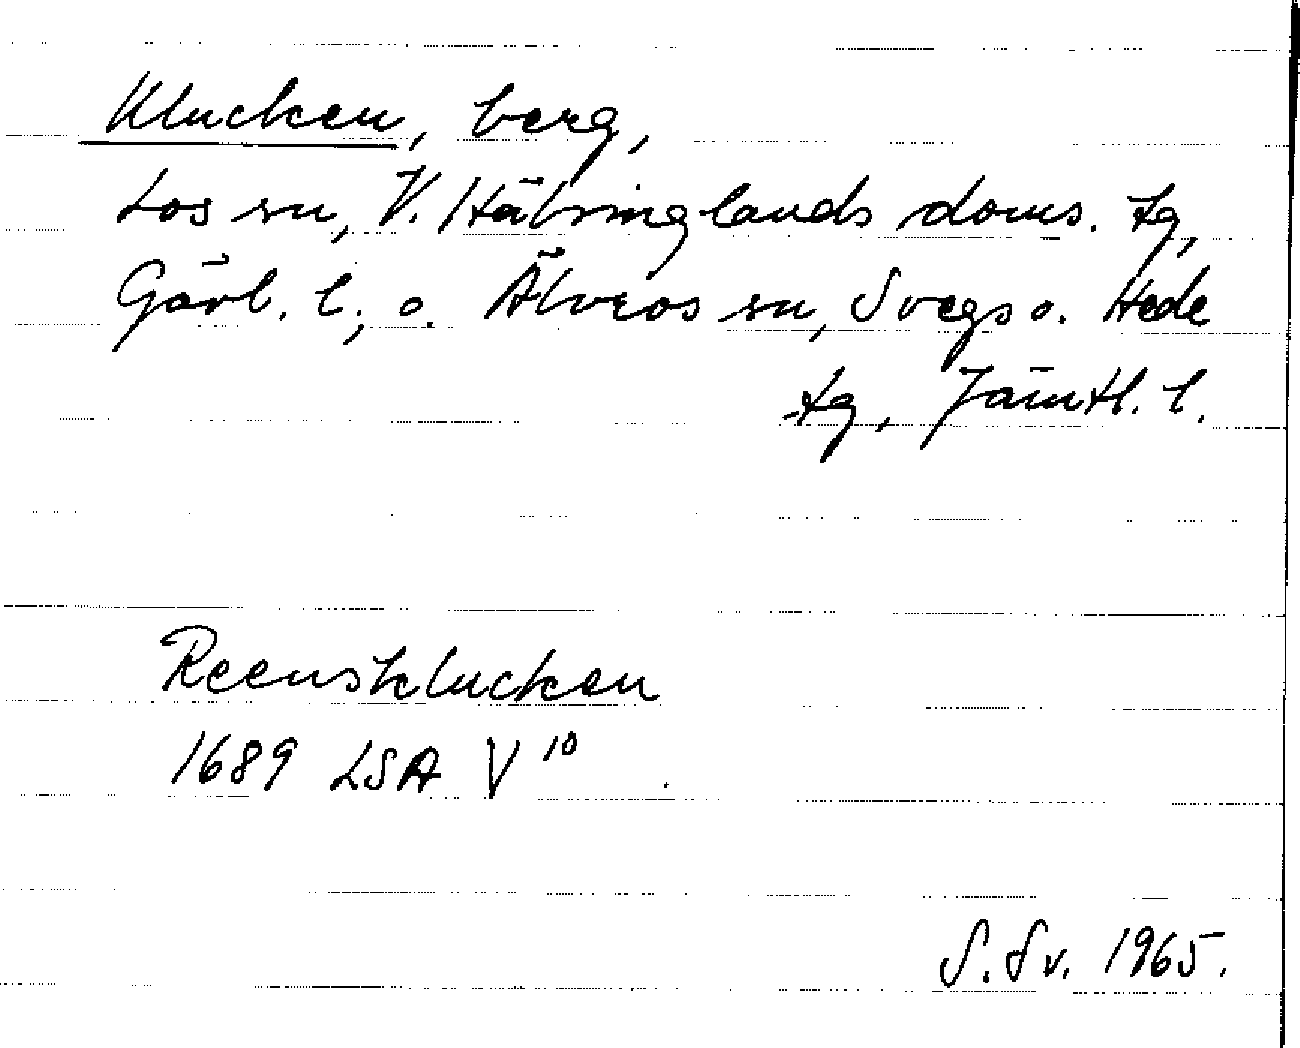 Klucken, berg,
Los sn, V. Hälsinglands doms. tg,
Gävl. l; o. Älvros sn, Svegs o. Hede
tg, Jämtl. l.
Reensklucken
1689 LSA V 10
S. Sv. 1965.